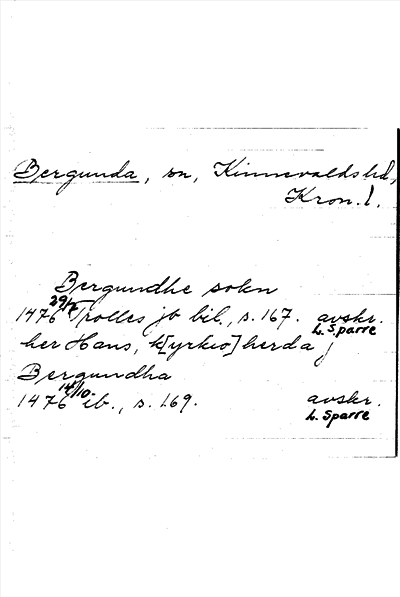 Bergunda, sn, Kinnevalds hd,
Kron. l.
Bergundhe sokn
1476 29/2 Trolles jb bil., s. 167. avskr.
L. Sparre
her Hans, k[yrkio]herda j
Bergundha
1476 14/10. ib., s. 169. avskr.
L. Sparre